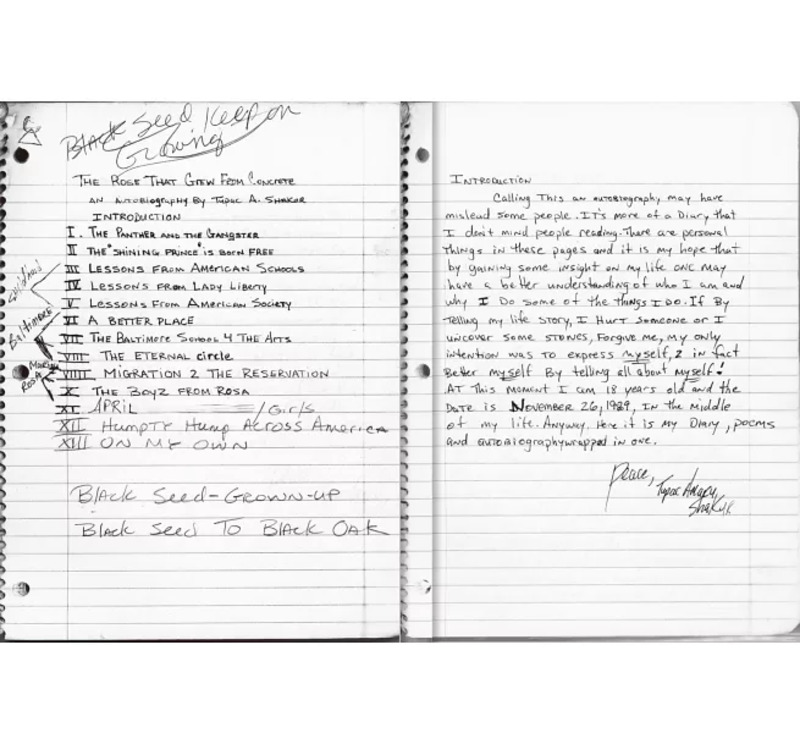 Black Seed Keep on
Growing
THE ROSE THAT GREW FROM CONCRETE
AN AUTOBIOGRAPHY BY TUPAC A. SHAKUR
INTRODUCTION
I. THE PANTHER AND THE GANGSTER
II THE "SHINING PRINCE" IS BORN FREE
III LESSONS FROM AMERICAN SCHOOLS
Childhood
IV LESSONS FROM LADY LIBERTY
V LESSONS FROM AMERICAN SOCIETY
VI A BETTER PLACE
Baltimore
VII THE BALTIMORE SCHOOL 4 THE ARTS
VIII THE ETERNAL circle
Marin
VIIII MIGRATION 2 THE RESERVATION
ROSA
X THE BOYZ FROM ROSA
XI APRIL / Girls
XII HUMPTY HUMP ACROSS AMERICA
XIII ON MY OWN
BLACK SEED-GROWN-UP
BLACK SEED TO BLACK OAK
INTRODUCTION
Calling This an autobiography may have
mislead some people. It's more of a Diary that
I don't mind people reading. There are personal
Things in these pages and it is my hope that
by gaining some insight on my life one may
have a better understanding of who I am and
why I Do some of the things I Do. If By
Telling my life story, I Hurt someone or I
uncover some stones, Forgive me, My only
intention was to express myself, 2 in fact
Better myself By telling all about myself!
AT This moment I am 18 years old and the
Date is November 26, 1989, In the middle
of my life. Anyway. Here it is my Diary, poems
and autobiography wrapped in one.
Peace,
Tupac Amaru
Shakur